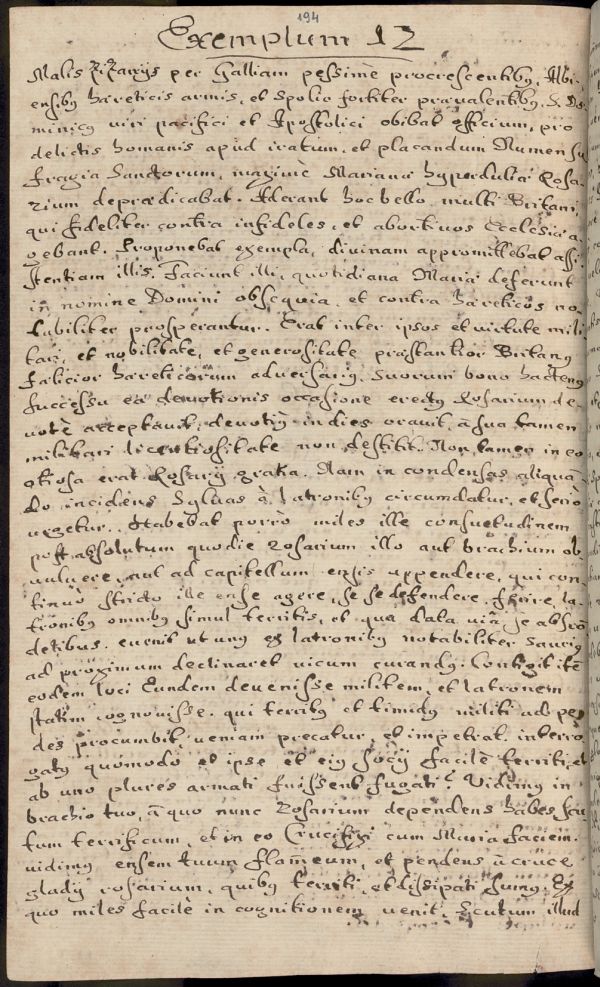 194
Exemplum 12
Malis Zizanijs per Galliam pessimè procrescentibꝫ, Albi-
ensibꝫ hæreticis armis, et spolio fortiter præualentibꝫ. S. Do
minicꝫ uiri pacifici et Apostolici obibat officium, pro
delictis homanis apud iratum, et placandum Numen su
fragia Sanctorum, maximè Marianâ hyperduliâ Rosa-
rium deprædicabat. Aderant hoc bello multi Britani,
qui fideliter contra infideles, et abortiuos Ecclesiæ a-
gebant. Proponebat exempla, diuinam appromittebat assi-
stentiam illis. Faciunt illi, quotidiana Mariæ deferunt
in nomine Domini obsequia, et contra hæreticos no-
tabiliter prosperantur. Erat inter ipsos et uirtute mili
tari, et nobilitate, et generositate præstantior Britanꝫ
fælicior hæreticorum aduersariꝫ. Suorum bono hactenꝫ
successu ea deuotionis occasione erectꝫ Rosarium de-
uotè acceptauit, deuotiꝫ in dies orauit, à sua tamen
militari licentiositate non destitit. Non tamen in eo
otiosa erat Rosarij gratia. Nam in condensas aliquā
do incidens Syluas à latronibꝫ circumdatur, et seriò
urgetur. Habebat porrò miles ille consuetudinem
post absolutum quodie rosarium illo aut brachium ob
uoluere, aut ad capitellum ensis appendere, qui con-
tinuò stricto ille ense agere, se se defendere, ferire, la-
tronibꝫ omnibꝫ simul territis, et qua data uia, se abscō
detibus. euenit ut unꝫ ex latronibꝫ notabiliter sauciꝫ
ad proximum declinaret uicum curandꝫ. Contigit itē
eodem loci Eundem deuenisse militem, et latronem
statim cognouisse. qui territꝫ et timidꝫ militi ad pe-
des procumbit, ueniam precatur, et impetrat. interro
gatꝫ quomodo et ipse et eiꝫ socij facilè territi, et
ab uno plures armati fuissent fugati? Vidimꝫ in
brachio tuo, à quo nunc Rosarium dependens habes, scu
tum terrificum, et in eo Crucifixi cum Maria faciem.
uidimꝫ ensem tuum flam̄eum, et pendens à cruce
gladij rosarium, quibꝫ territi, et dissipati sumꝫ. Ex
quo miles facilè in cognitionem uenit, Scutum illud